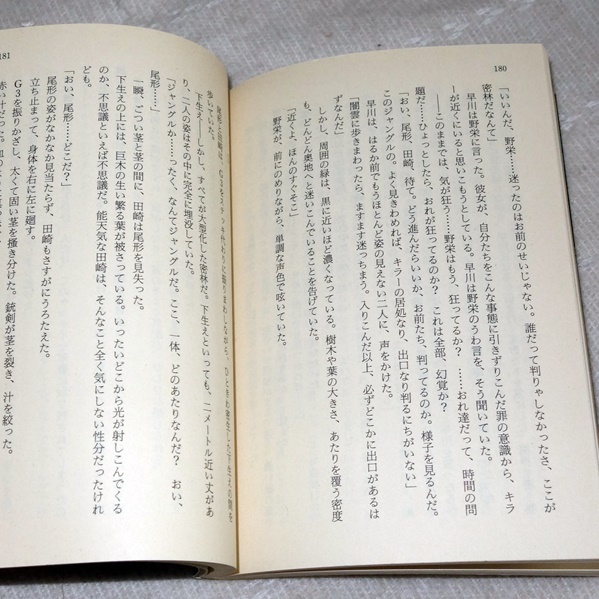 180
「いいんだ、野栄……迷ったのはお前のせいじゃない。誰だって判りゃしなかったさ、ここが
密林だなんて」
早川は野栄に言った。彼女が、自分たちをこんな事態に引きずりこんだ罪の意識から、キラ
ーが近くにいると思いこもうとしている。早川は野栄のうわ言を、そう聞いていた。
――このままでは、気が狂う……野栄はもう、狂ってるか？　……おれ達だって、時間の問
題だ……ひょっとしたら、おれが狂ってるのか？　これは全部、幻覚か？
「おい、尾形、田崎、待て。どう進んだらいいか、お前たち、判ってるのか。様子を見るんだ。
このジャングルの。よく見きわめれば、キラーの居処なり、出口なり判るにちがいない」
早川は、はるか前でもうほとんど姿の見えない二人に、声をかけた。
「闇雲に歩きまわったら、ますます迷っちまう。入りこんだ以上、必ずどこかに出口があるは
ずなんだ」
しかし、周囲の緑は、黒に近いほど濃くなっている。樹木や葉の大きさ、あたりを覆う密度
も、どんどん奥地へと迷いこんでいることを告げていた。
「近くよ、ほんのすぐそこ」
野栄が、前にのめりながら、単調な声色で呟いていた。
181
尾形と田崎は、G3をステッキ代わりに振りまわしながら、ひときわ密生した下生えの間を
歩いていた。
下生え――しかし、すべてが大型化した密林だ。下生えといっても、二メートル近い丈があ
り、二人の姿はその中に完全に埋没していた。
「ジャングルか……ったく、なんてジャングルだ。ここ、一体、どのあたりなんだ？　おい、
尾形……」
一瞬、ごつい茎と茎の間に、田崎は尾形を見失った。
下生えの上には、巨木の生い繁る葉が被さっている。いったいどこから光が射しこんでくる
のか、不思議といえば不思議だ。能天気な田崎は、そんなこと全く気にしない性分だったけれ
ども。
「おい、尾形……どこだ？」
尾形の姿がなかなか見当たらず、田崎もさすがにうろたえた。
立ち止まって、身体を右に左に廻す。
G3を振りかざし、太くて固い茎を掻き分けた。銃剣が茎を裂き、汁を絞った。